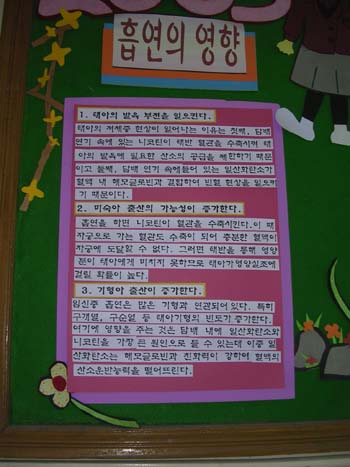 흡연의 영향
1. 태아의 발육 부전을 일으킨다.
태아의 저체중 현상이 일어나는 이유는 첫째, 담배
연기 속에 있는 니코틴이 태반 혈관을 수축시켜 태
아의 발육에 필요한 산소의 공급을 제한하기 때문
이고 둘째, 담배 연기 속에 들어 있는 일산화탄소가
혈액 내 헤모글로빈과 결합하여 빈혈 현상을 일으키
기 때문이다.
2. 미숙아 출산의 가능성이 증가한다.
흡연을 하면 니코틴이 혈관을 수축시킨다.이 때
자궁으로 가는 혈관도 수축이 되어 충분한 혈액이
자궁에 도달할 수 없다. 그러면 태반을 통해 영양
분이 태아에게 미치지 못하므로 태아가영양실조에
걸릴 확률이 높다.
3. 기형아 출산이 증가한다.
임신중 흡연은 많은 기형과 연관되어 있다. 특히
구개열, 구순열 등 태아기형의 빈도가 증가한다.
여기에 영향을 주는 것은 담배 내에 일산화탄소와
니코틴을 가장 큰 원인으로 들 수 있는데 이중 일
산화탄소는 헤모글로빈과 친화력이 강하여 혈액의
산소운반능력을 떨어뜨린다.